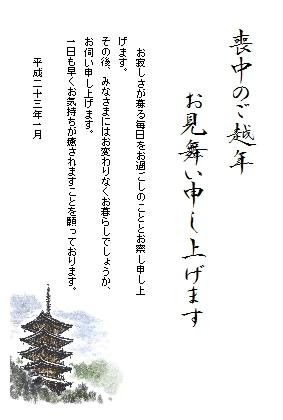 喪中のご越年
お見舞い申し上げます
お寂しさが募る毎日をお過ごしのこととお察し申し上
げます。
その後、みなさまにはお変わりなくお暮らしでしょうか、
お伺い申し上げます。
一日も早くお気持ちが癒されますことを願っております。
平成二十三年一月